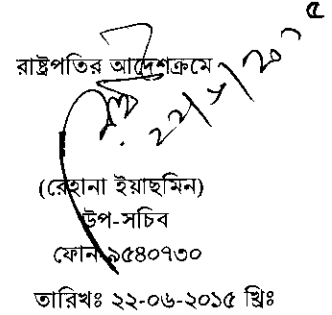 রাষ্ট্রপতির আদেশক্রমে
(রেহানা ইয়াছমিন)
উপ-সচিব
ফোন-৯৫৪০৭৩০
তারিখঃ ২২-০৬-২০১৫ খ্রিঃ